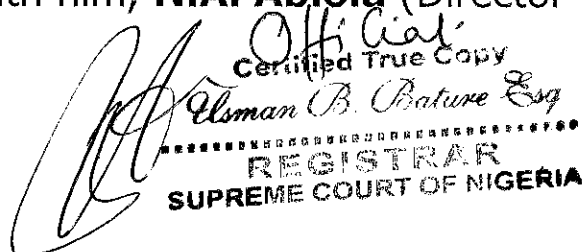 ith him, NIAI Abiola (Director
Official
Certified True Copy
Usman B. Bature Esq
REGISTRAR
SUPREME COURT OF NIGERIA